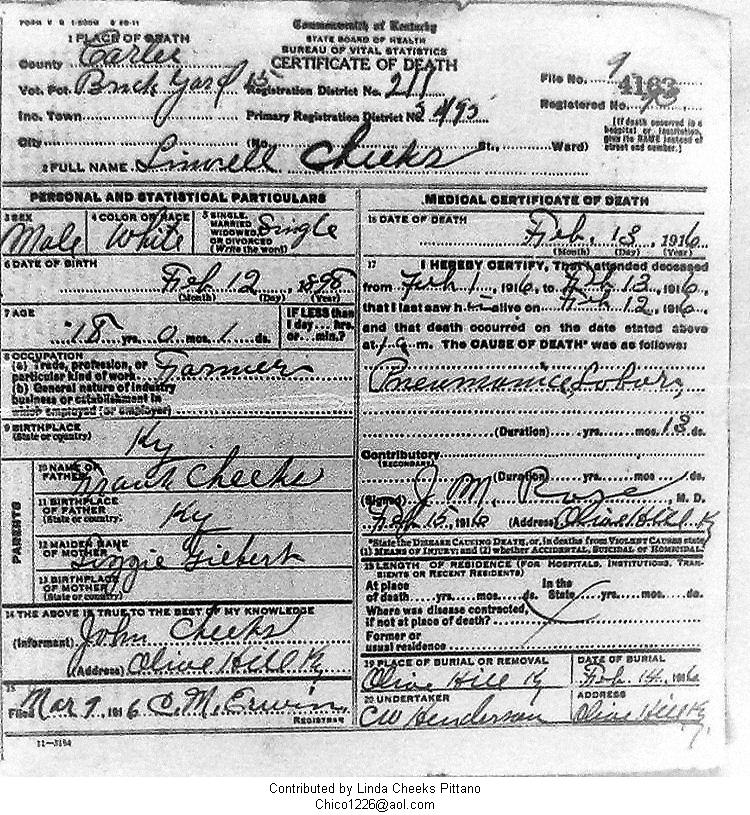 FORM V. S. 1-500M 8-26-11
Commonwealth of Kentucky
STATE BOARD OF HEALTH
BUREAU OF VITAL STATISTICS
CERTIFICATE OF DEATH
1 PLACE OF DEATH
County Carter
Vot. Pct. Brick Yard
Registration District No. 211
File No. 9 4163
Inc. Town
Primary Registration District No. 5495
Registered No.
City (No. St., Ward)
[If death occurred in a hospital or institution, give its NAME instead of street and number.]
2 FULL NAME Cheeks
PERSONAL AND STATISTICAL PARTICULARS
3 SEX Male
4 COLOR OR RACE White
5 SINGLE, MARRIED, WIDOWED OR DIVORCED (Write the word) Single
6 DATE OF BIRTH Feb 12, 1898
(Month) (Day) (Year)
7 AGE 18 yrs. 0 mos. 1 ds.
IF LESS than 1 day... hrs. or... min.?
8 OCCUPATION
(a) Trade, profession, or particular kind of work Farmer
(b) General nature of industry
business or establishment in
which employed (or employer)
9 BIRTHPLACE
(State or country) Ky
PARENTS
10 NAME OF FATHER Frank Cheeks
11 BIRTHPLACE OF FATHER
(State or country) Ky
12 MAIDEN NAME OF MOTHER Lizzie Gilbert
13 BIRTHPLACE OF MOTHER
(State or country)
14 THE ABOVE IS TRUE TO THE BEST OF MY KNOWLEDGE
(Informant) John Cheeks
(Address) Olive Hill Ky
15
Filed Mar 9, 1916 C. M. Erwin
REGISTRAR
11-3184
MEDICAL CERTIFICATE OF DEATH
16 DATE OF DEATH
Feb. 13, 1916
(Month) (Day) (Year)
17 I HEREBY CERTIFY, That I attended deceased
from Feb 1, 1916, to Feb 12, 1916,
that I last saw h im alive on Feb 12, 1916,
and that death occurred on the date stated above
at 1 a m. The CAUSE OF DEATH* was as follows:
Pneumonia Lobar
(Duration) yrs. mos. 13 ds.
Contributory
(SECONDARY)
(Duration) yrs. mos. ds.
(Signed) J M. Rose, M. D.
Feb 15, 1916 (Address) Olive Hill Ky
*State the DISEASE CAUSING DEATH, or, in deaths from VIOLENT CAUSES state
(1) MEANS OF INJURY; and (2) whether ACCIDENTAL, SUICIDAL OR HOMICIDAL
18 LENGTH OF RESIDENCE (FOR HOSPITALS, INSTITUTIONS, TRANSIENTS OR RECENT RESIDENTS)
At place of death yrs. mos. ds. In the State yrs. mos. ds.
Where was disease contracted, if not at place of death?
Former or usual residence
19 PLACE OF BURIAL OR REMOVAL
Olive Hill Ky
DATE OF BURIAL
Feb. 14, 1916
20 UNDERTAKER
CW Henderson
ADDRESS
Olive Hill Ky
Contributed by Linda Cheeks Pittano
Chico1226@aol.com